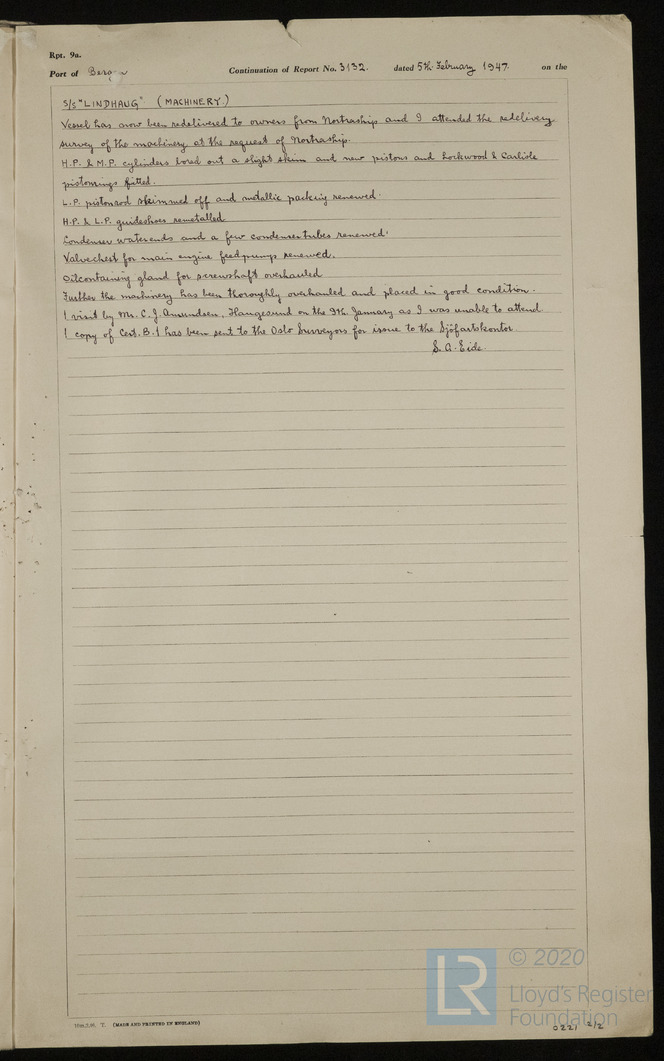 Rpt. 9a.
Port of Bergen Continuation of Report No. 3132. dated 5th February 1947. on the
S/S "LINDHAUG" (MACHINERY.)
Vessel has now been redelivered to owners from Nortraship and I attended the redelivery
survey of the machinery at the request of Nortraship.
H.P. & M.P. cylinders bored out a slight skim and new pistons and Lockwood & Carlisle
pistonrings fitted.
L.P. pistonrod skimmed off and metallic packing renewed.
H.P. & L.P. guideshoes remetalled
Condenser waterends and a few condensertubes renewed.
Valvechest for main engine feedpumps renewed.
Oilcontaining gland for screwshaft overhauled
Further the machinery has been thoroughly overhauled and placed in good condition.
1 visit by Mr. C. J. Amundsen, Haugesund on the 9th January as I was unable to attend.
1 copy of Cert. B.1 has been sent to the Oslo Surveyors for issue to the Sjöfartskontor.
S. A. Eide.
T. (MADE AND PRINTED IN ENGLAND)
LR
© 2020
Lloyd's Register
Foundation
0221 2/2